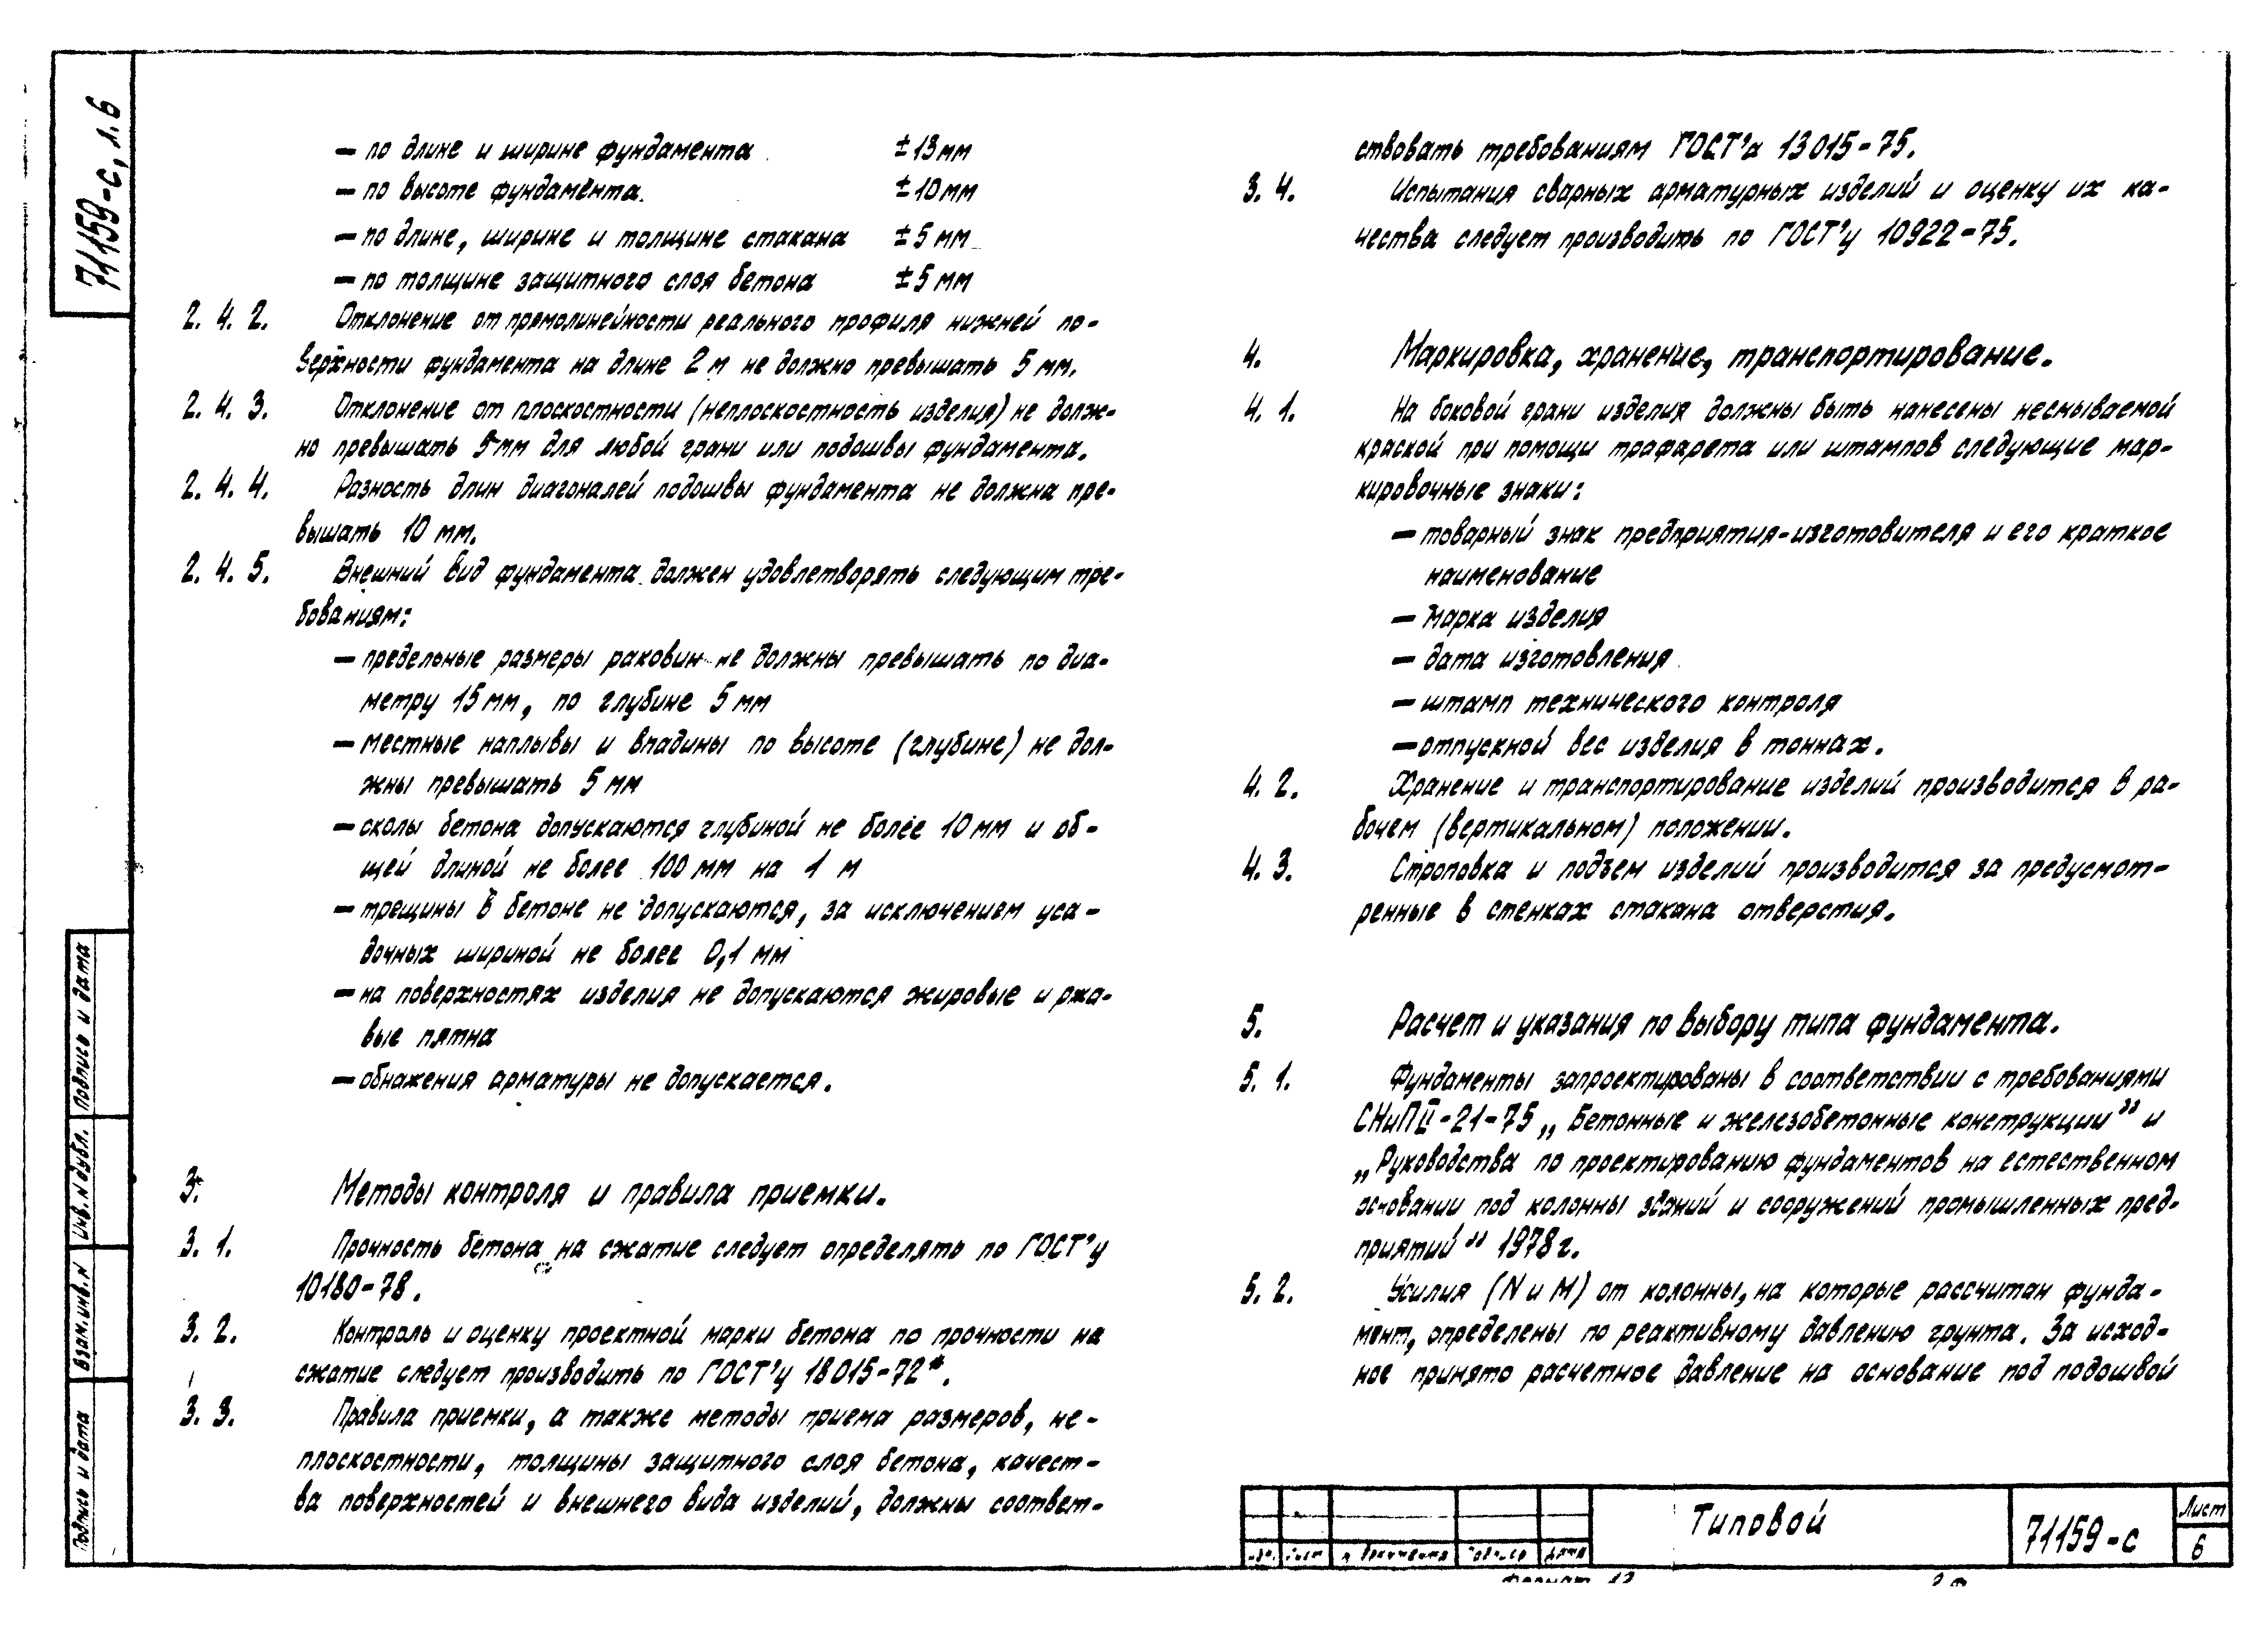 71159-с, л.6
— по длине и ширине фундамента ±13мм
— по высоте фундамента. ±10мм
— по длине, ширине и толщине стакана ±5 мм
— по толщине защитного слоя бетона ±5 мм
2. 4. 2. Отклонение от прямолинейности реального профиля нижней по-
верхности фундамента на длине 2 м не должно превышать 5 мм.
2. 4. 3. Отклонение от плоскостности (неплоскостность изделия) не долж-
но превышать 5 мм для любой грани или подошвы фундамента.
2. 4. 4. Разность длин диагоналей подошвы фундамента не должна пре-
вышать 10 мм.
2. 4. 5. Внешний вид фундамента должен удовлетворять следующим тре-
бованиям:
— предельные размеры раковин не должны превышать по диа-
метру 15 мм, по глубине 5 мм
— местные наплывы и впадины по высоте (глубине) не дол-
жны превышать 5 мм
— сколы бетона допускаются глубиной не более 10 мм и об-
щей длиной не более 100 мм на 1 м
— трещины в бетоне не допускаются, за исключением уса-
дочных шириной не более 0,1 мм
— на поверхностях изделия не допускаются жировые и ржа-
вые пятна
— обнажения арматуры не допускается.
3. Методы контроля и правила приемки.
3. 1. Прочность бетона на сжатие следует определять по ГОСТ'у
10180-78.
3. 2. Контроль и оценку проектной марки бетона по прочности на
сжатие следует производить по ГОСТ'у 18015-72*.
3. 3. Правила приемки, а также методы приема размеров, не-
плоскостности, толщины защитного слоя бетона, качест-
ва поверхностей и внешнего вида изделий, должны соответ-
ствовать требованиям ГОСТ'а 13015-75.
3. 4. Испытания сварных арматурных изделий и оценку их ка-
чества следует производить по ГОСТ'у 10922-75.
4. Маркировка, хранение, транспортирование.
4. 1. На боковой грани изделия должны быть нанесены несмываемой
краской при помощи трафарета или штампов следующие мар-
кировочные знаки:
— товарный знак предприятия-изготовителя и его краткое
наименование
— марка изделия
— дата изготовления
— штамп технического контроля
— отпускной вес изделия в тоннах.
4. 2. Хранение и транспортирование изделий производится в ра-
бочем (вертикальном) положении.
4. 3. Строповка и подъем изделий производится за предусмот-
ренные в стенках стакана отверстия.
5. Расчет и указания по выбору типа фундамента.
5. 1. Фундаменты запроектированы в соответствии с требованиями
СНиП II-21-75 „Бетонные и железобетонные конструкции” и
„Руководства по проектированию фундаментов на естественном
основании под колонны зданий и сооружений промышленных пред-
приятий” 1978г.
5. 2. Усилия (N и M) от колонны, на которые рассчитан фунда-
мент, определены по реактивному давлению грунта. За исход-
ное принято расчетное давление на основание под подошвой
Подпись и дата
Инв. N дубл.
Взам. инв. N
Подпись и дата
Изм. Лист N документа Подпись Дата
Типовой
71159-с
Лист
6
Формат 12